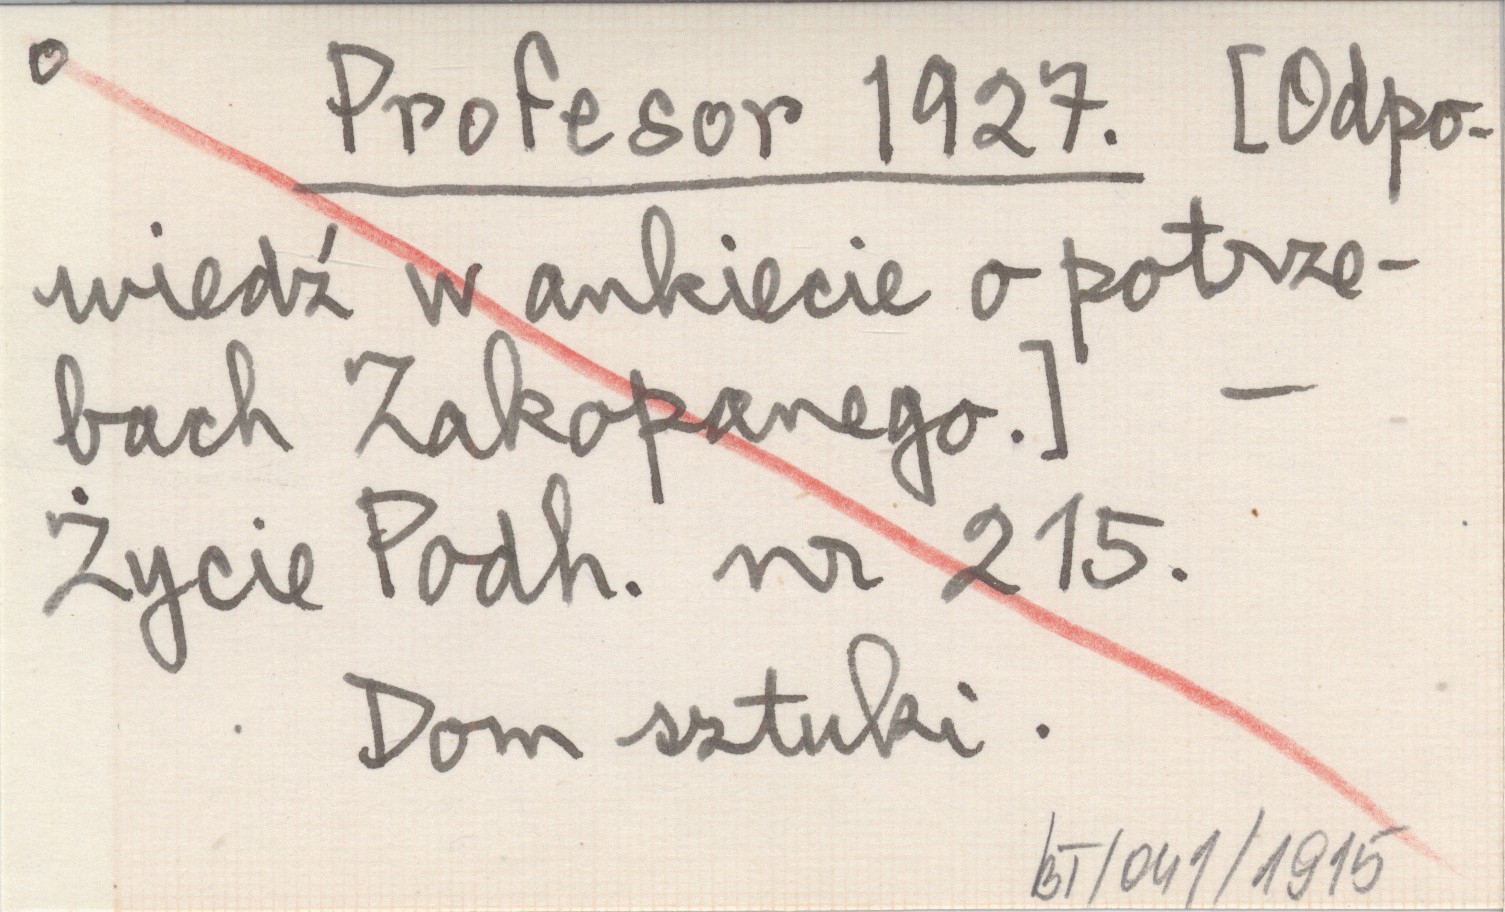 Profesor 1927. [Odpo-
wiedź w ankiecie o potrze-
bach Zakopanego.] —
Życie Podh. nr 215.
Dom sztuki.
BT/041/1915